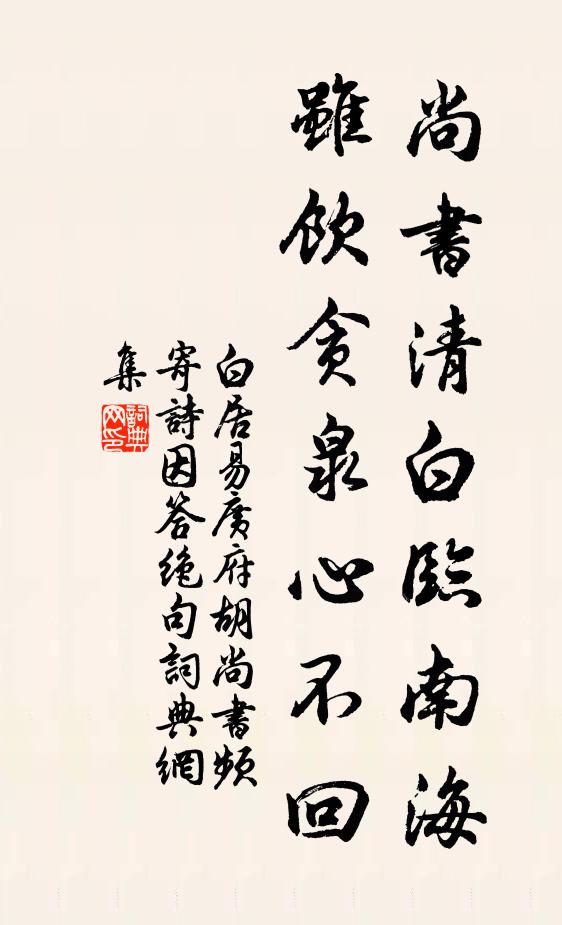 尚書清白臨南海
雖飲貪泉心不回
白居易廣府胡尚書頻
寄詩因答絶句詞典網
集
詞典
网印